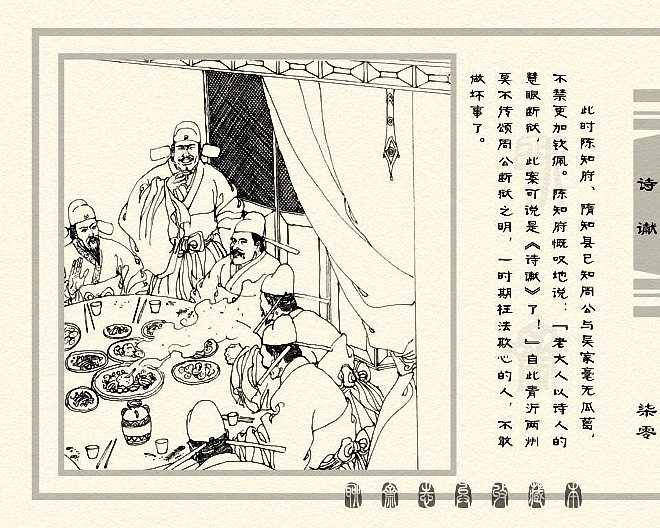 此时陈知府、隋知县已知周公与吴家毫无瓜葛，
不禁更加钦佩。陈知府慨叹地说：「老大人以诗人的
慧眼断狱，此案可说是《诗谳》了！」自此青沂两州
莫不传颂周公断狱之明，一时期枉法欺心的人，不敢
做坏事了。
诗谳
柒零